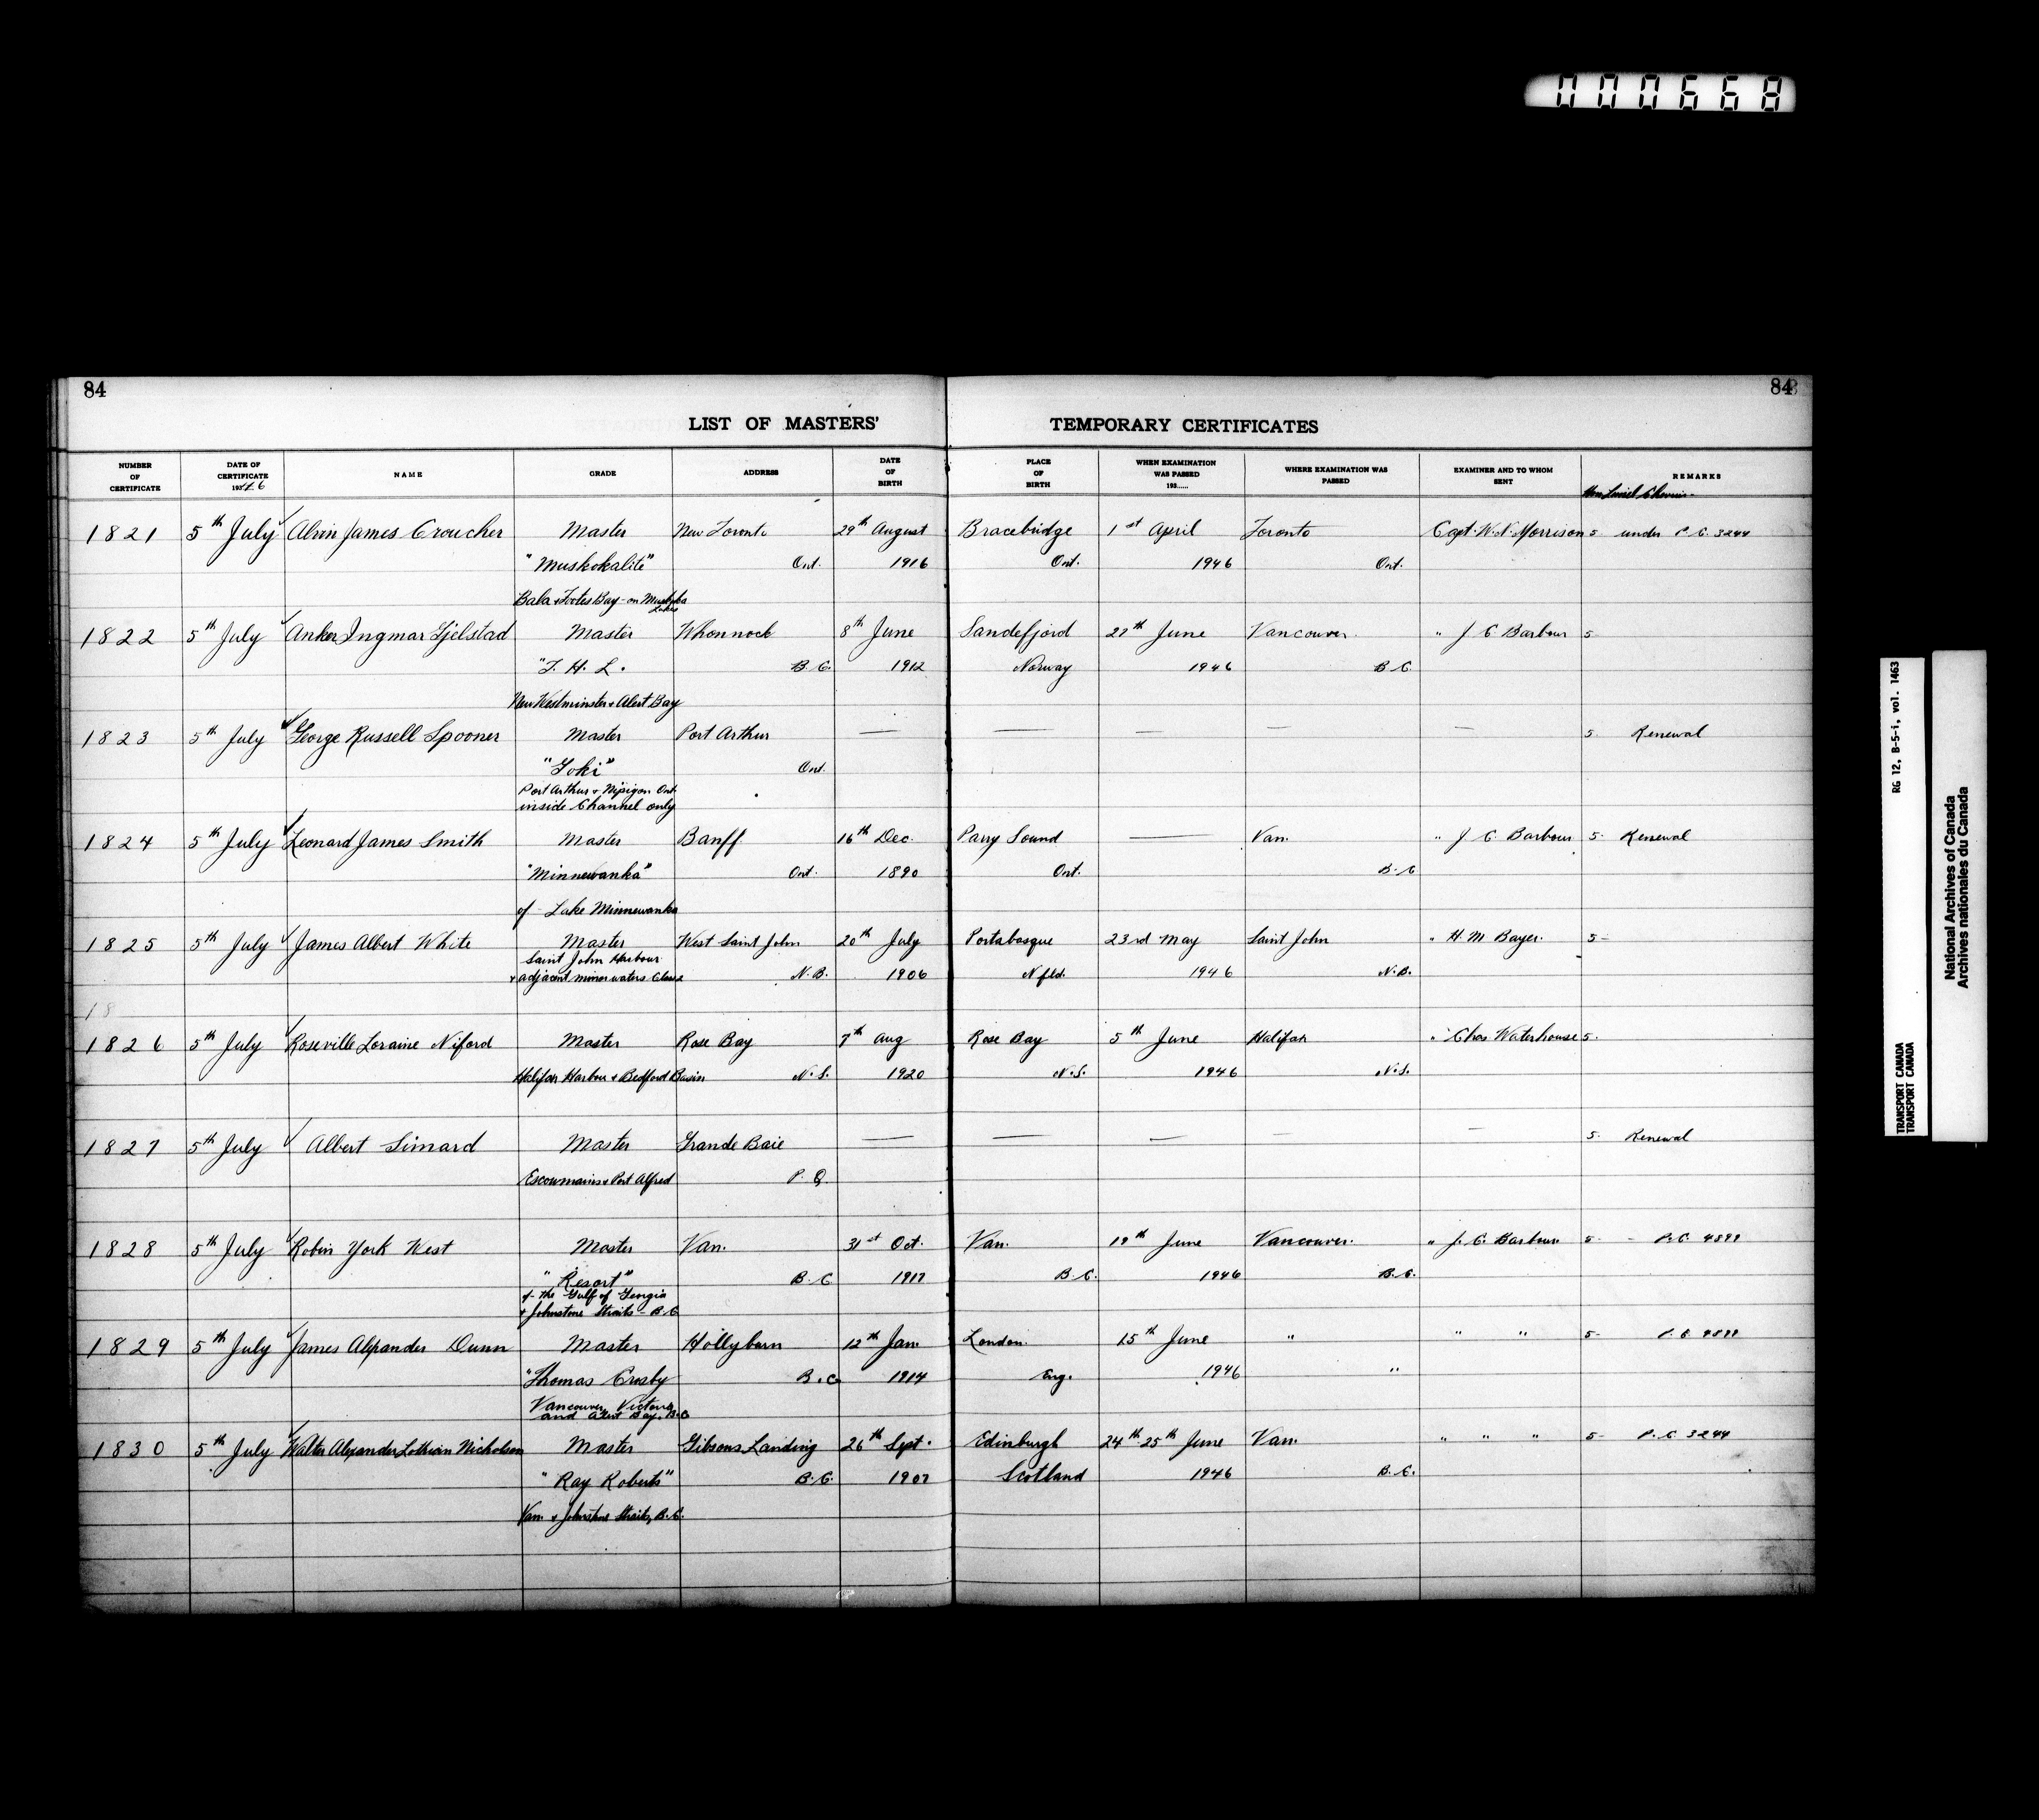 000668
84
84
LIST OF MASTERS' TEMPORARY CERTIFICATES
NUMBER OF CERTIFICATE
DATE OF CERTIFICATE 1946
NAME
GRADE
ADDRESS
DATE OF BIRTH
PLACE OF BIRTH
WHEN EXAMINATION WAS PASSED 193.....
WHERE EXAMINATION WAS PASSED
EXAMINER AND TO WHOM SENT
REMARKS
Hon Lionel Chevrier
1821 5th July Alvin James Croucher Master New Toronto 29th August Bracebridge 1st April Toronto Capt. W. N. Morrison 5 under P.C. 3244
"Muskokalite" Ont. 1916 Ont. 1946 Ont.
Bala & Footes Bay - on Muskoka Lakes
1822 5th July Anker Ingmar Gjelstad Master Whonnock 8th June Sandefjord 27th June Vancouver. " J. C. Barbour 5
B.C. 1912 Norway 1946 B.C.
New Westminster & Alert Bay
1823 5th July George Russell Spooner Master Port Arthur — — — — — 5. Renewal
Ont.
Port Arthur & Nipigon Ont
inside Channel only
1824 5th July Leonard James Smith Master Banff 16th Dec. Parry Sound — Van. " J. C. Barbour 5. Renewal
"Minnewanka" Ont. 1890 Ont. B.C
of - Lake Minnewanka
1825 5th July James Albert White Master West Saint John 20th July Portabasque 23rd May Saint John " H. M. Bayer. 5-
Saint John Harbour
& adjacent minor waters Class 2 N.B. 1906 Nfld. 1946 N.B.
18
1826 5th July Roseville Loraine Niford Master Rose Bay 7th Aug Rose Bay 5th June Halifax " Chas Waterhouse 5.
Halifax Harbour & Bedford Basin N.S. 1920 N.S. 1946 N.S.
1827 5th July Albert Simard Master Grande Baie — — — — — 5. Renewal
Escoumains & Port Alfred P.Q.
1828 5th July Robin York West Master Van. 31st Oct. Van. 19th June Vancouver. " J. C. Barbour 5- - P.C. 4899
"Resort" B.C. 1917 B.C. 1946 B.C.
of - the Gulf of Georgia
& Johnstone Straits - B.C.
1829 5th July James Alexander Dunn Master Hollyburn 12th Jan. London. 15th June " " " 5- P.C. 4899
"Thomas Crosby B.C 1914 Eng. 1946 "
Vancouver, Victoria
and Alert Bay, B.C
1830 5th July Walter Alexander Lothian Nicholson Master Gibsons Landing 26th Sept. Edinburgh 24th 25th June Van. " " " 5- P.C. 3244
"Ray Roberts" B.C. 1907 Scotland 1946 B.C.
Van. & Johnstone Straits, B.C.
RG 12, B-5-i, vol. 1463
TRANSPORT CANADA
TRANSPORT CANADA
National Archives of Canada
Archives nationales du Canada